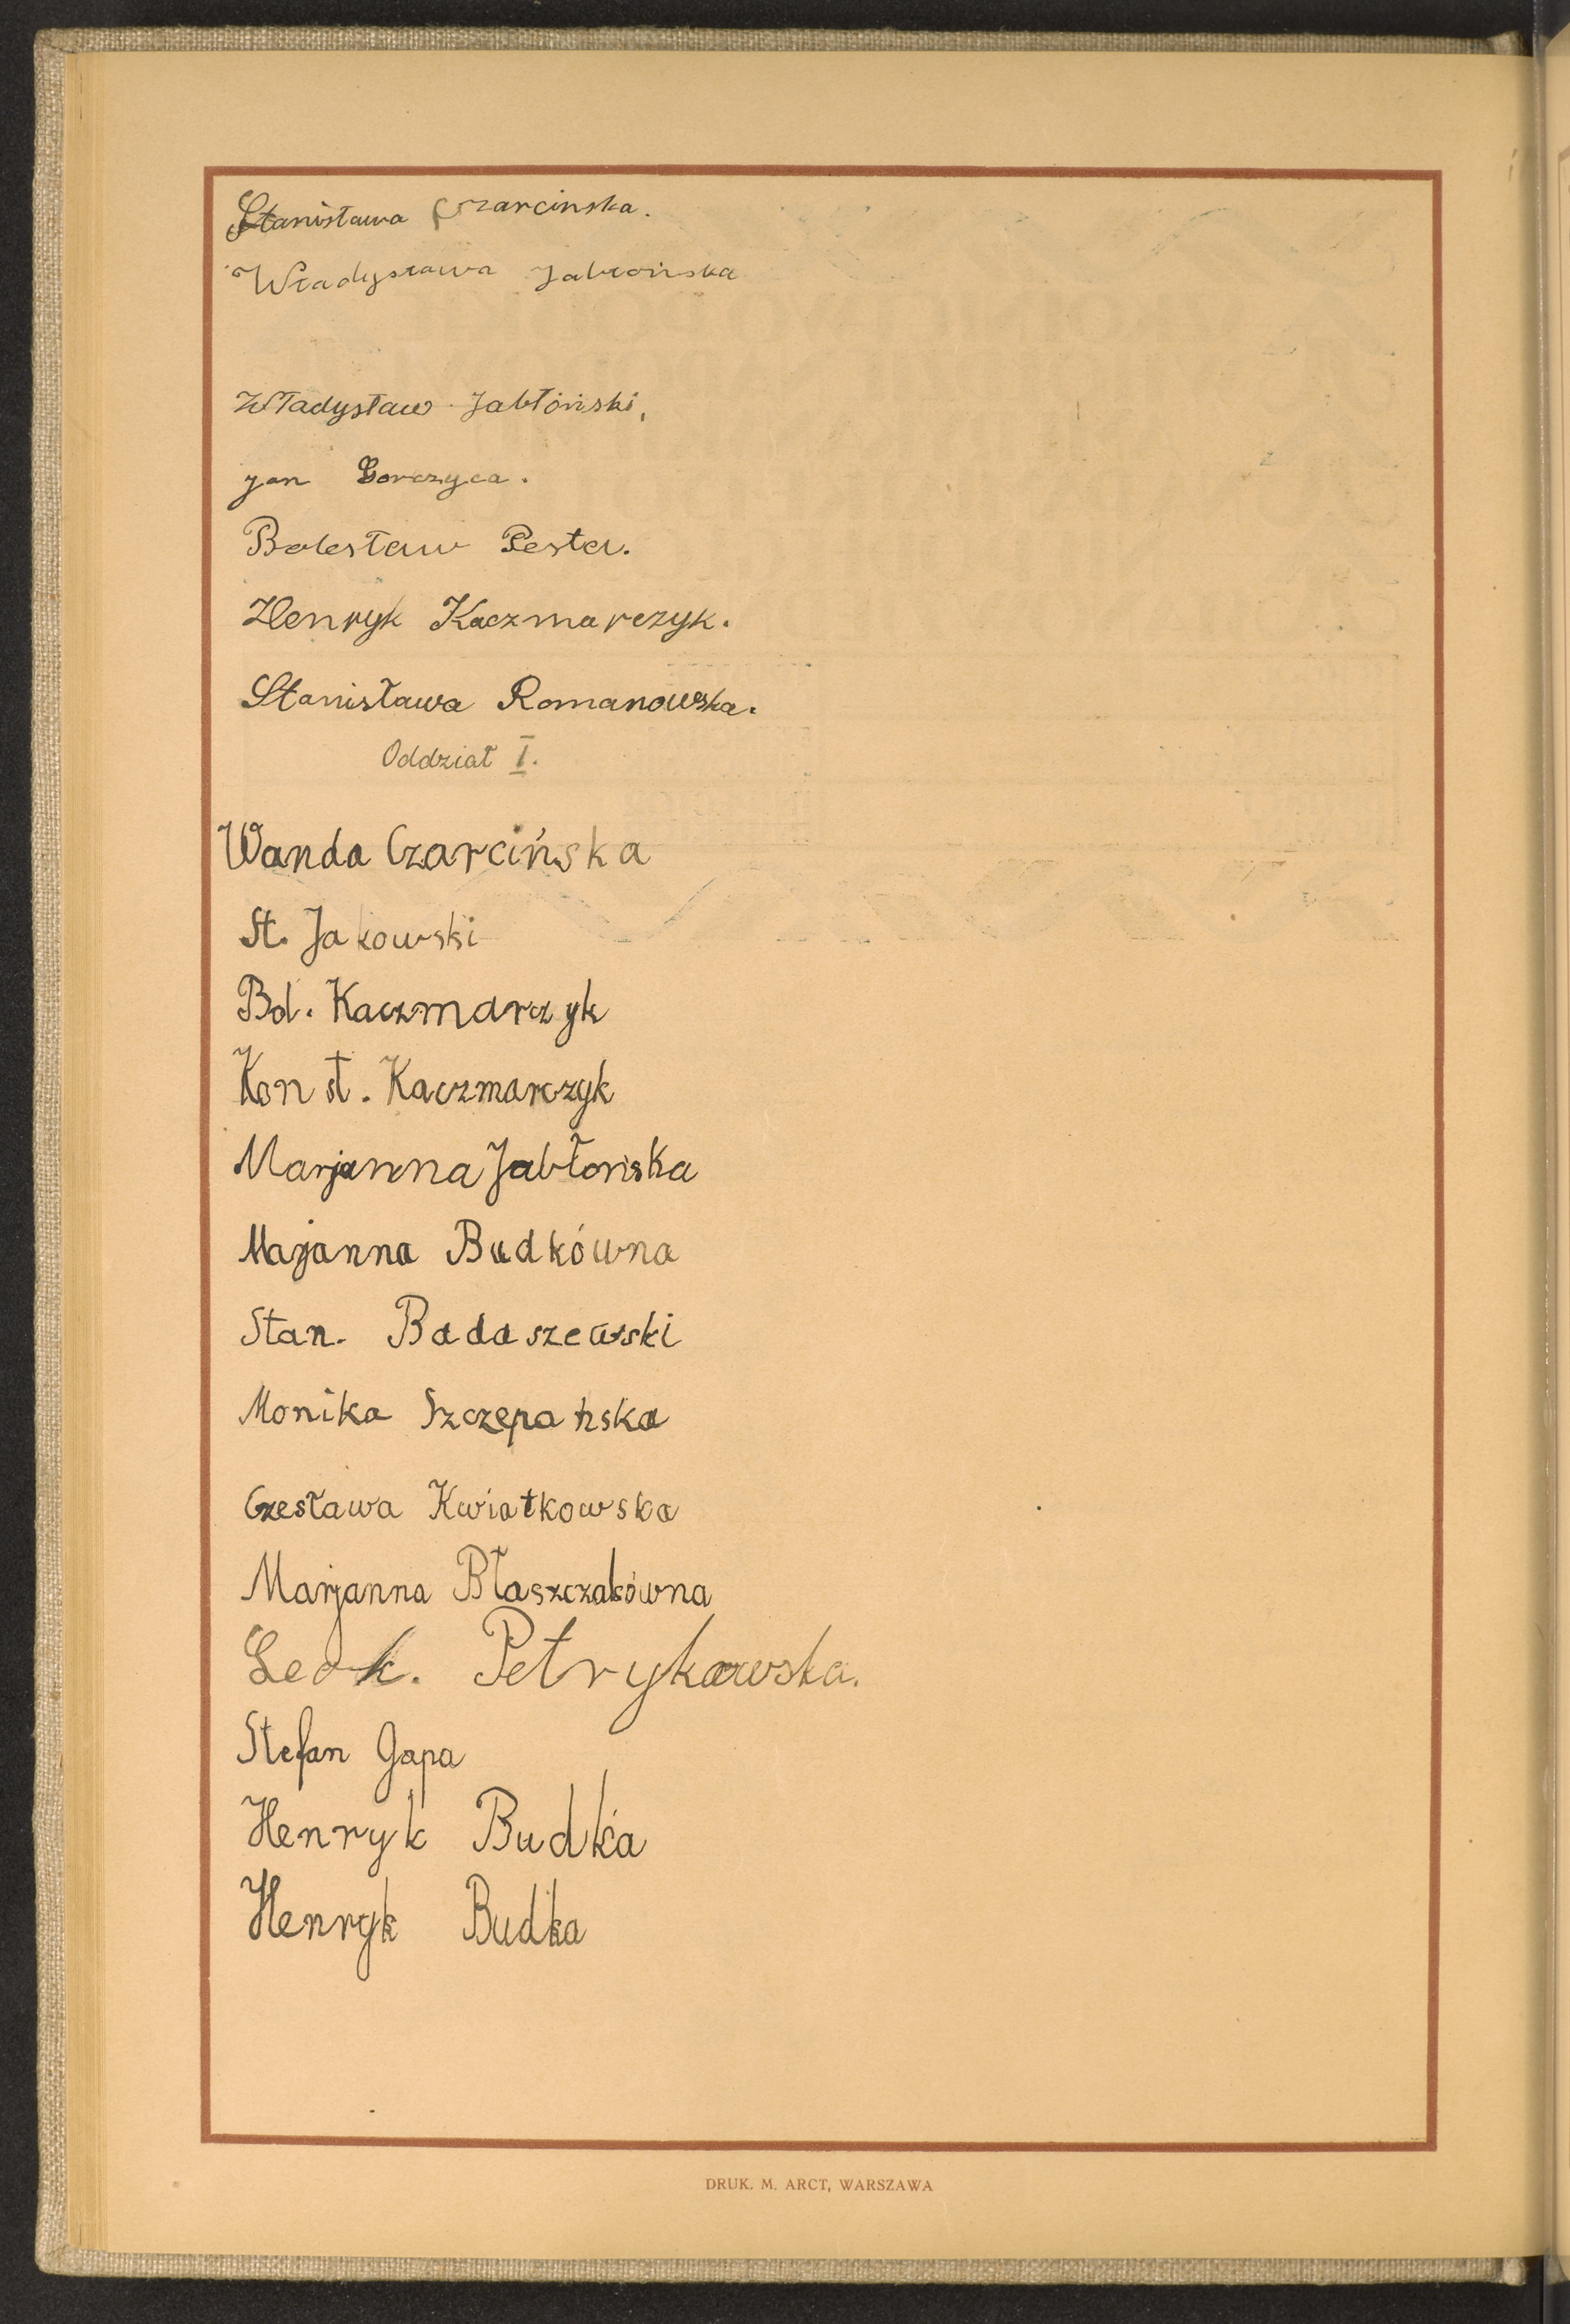 Stanisława Czarcinska.
Władysława Jabłońska
Władysław Jabłóński,
Jan Gorczyca.
Bolesław Pesta.
Henryk Kaczmarczyk.
Stanisława Romanowska.
Oddział I.
Wanda Czarcińska
St. Jakowski
Bol. Kaczmarczyk
Konst. Kaczmarczyk
Marjanna Jabłońska
Marjanna Budkówna
Stan. Badaszewski
Monika Szczepańska
Czesława Kwiatkowska
Marjanna Błaszczakówna
Leok. Petrykowska.
Stefan Gapa
Henryk Budka
Henryk Budka
DRUK. M. ARCT, WARSZAWA